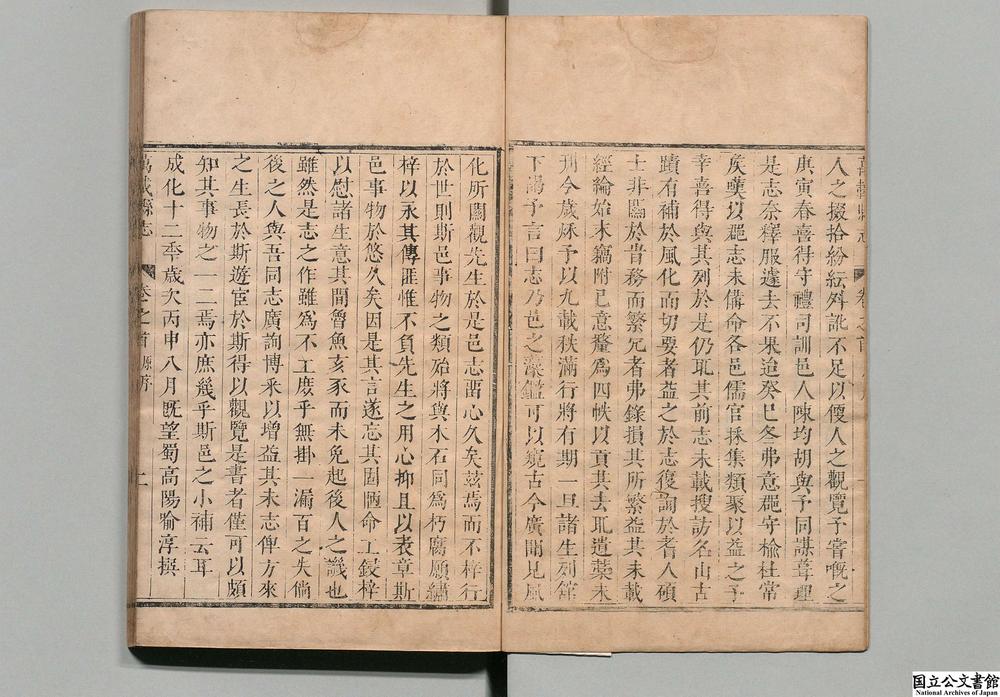 人之掇拾紛紜舛訛不足以便人之觀覽予嘗嘅之
庚寅春喜得守禮司訓邑人陳均胡與予同謀葺理
是志奈釋服遽去不果迨癸巳冬弗意郡守檢杜常
矦嘆以郡志未備命各邑儒官採集類聚以益之予
幸喜得與其列於是仍取其前志未載搜訪名山古
蹟有補於風化而切要者益之於志復詢於耆人碩
士非關於昔務而繁冗者弗錄損其所繁益其未載
經綸始末竊附己意釐為四帙以貢其去取遺藁未
刋今歳秌予以九載秩滿行將有期一旦諸生列舘
下謁予言曰志乃邑之藻鑑可以窺古今廣聞見風
化所關觀先生於是邑志畱心久矣茲焉而不梓行
於世則斯邑事物之類殆將與木石同為朽腐願繡
梓以永其傳匪惟不負先生之用心抑且以表章斯
邑事物於悠久矣因是其言遂忘其固陋命工鋟梓
以慰諸生意其間魯魚亥豕而未免起後人之譏也
雖然是志之作雖為不工庶乎無掛一漏百之失倘
後之人與吾同志廣詢博釆以增益其未志俾方來
之生長於斯遊宦於斯得以觀覽是書者僅可以頗
知其事物之一二焉亦庶幾乎斯邑之小補云耳
成化十二秊歲次丙申八月旣望蜀高陽喻淳撰
萬載縣志 卷之首 原序
国立公文書館
National Archives of Japan